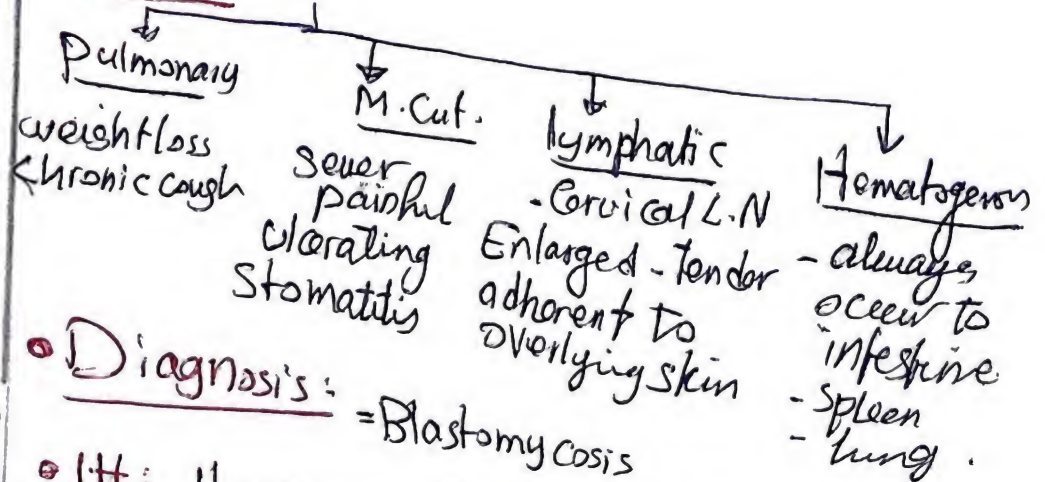 Pulmonary
weight loss
chronic cough
M.Cut.
Sever
painful
ulcerating
Stomatitis
lymphatic
- Cervical L.N
Enlarged - tender
adherent to
overlying skin
Hematogenous
- always
occur to
intestine
- Spleen
- lung.
• Diagnosis:
= Blastomycosis